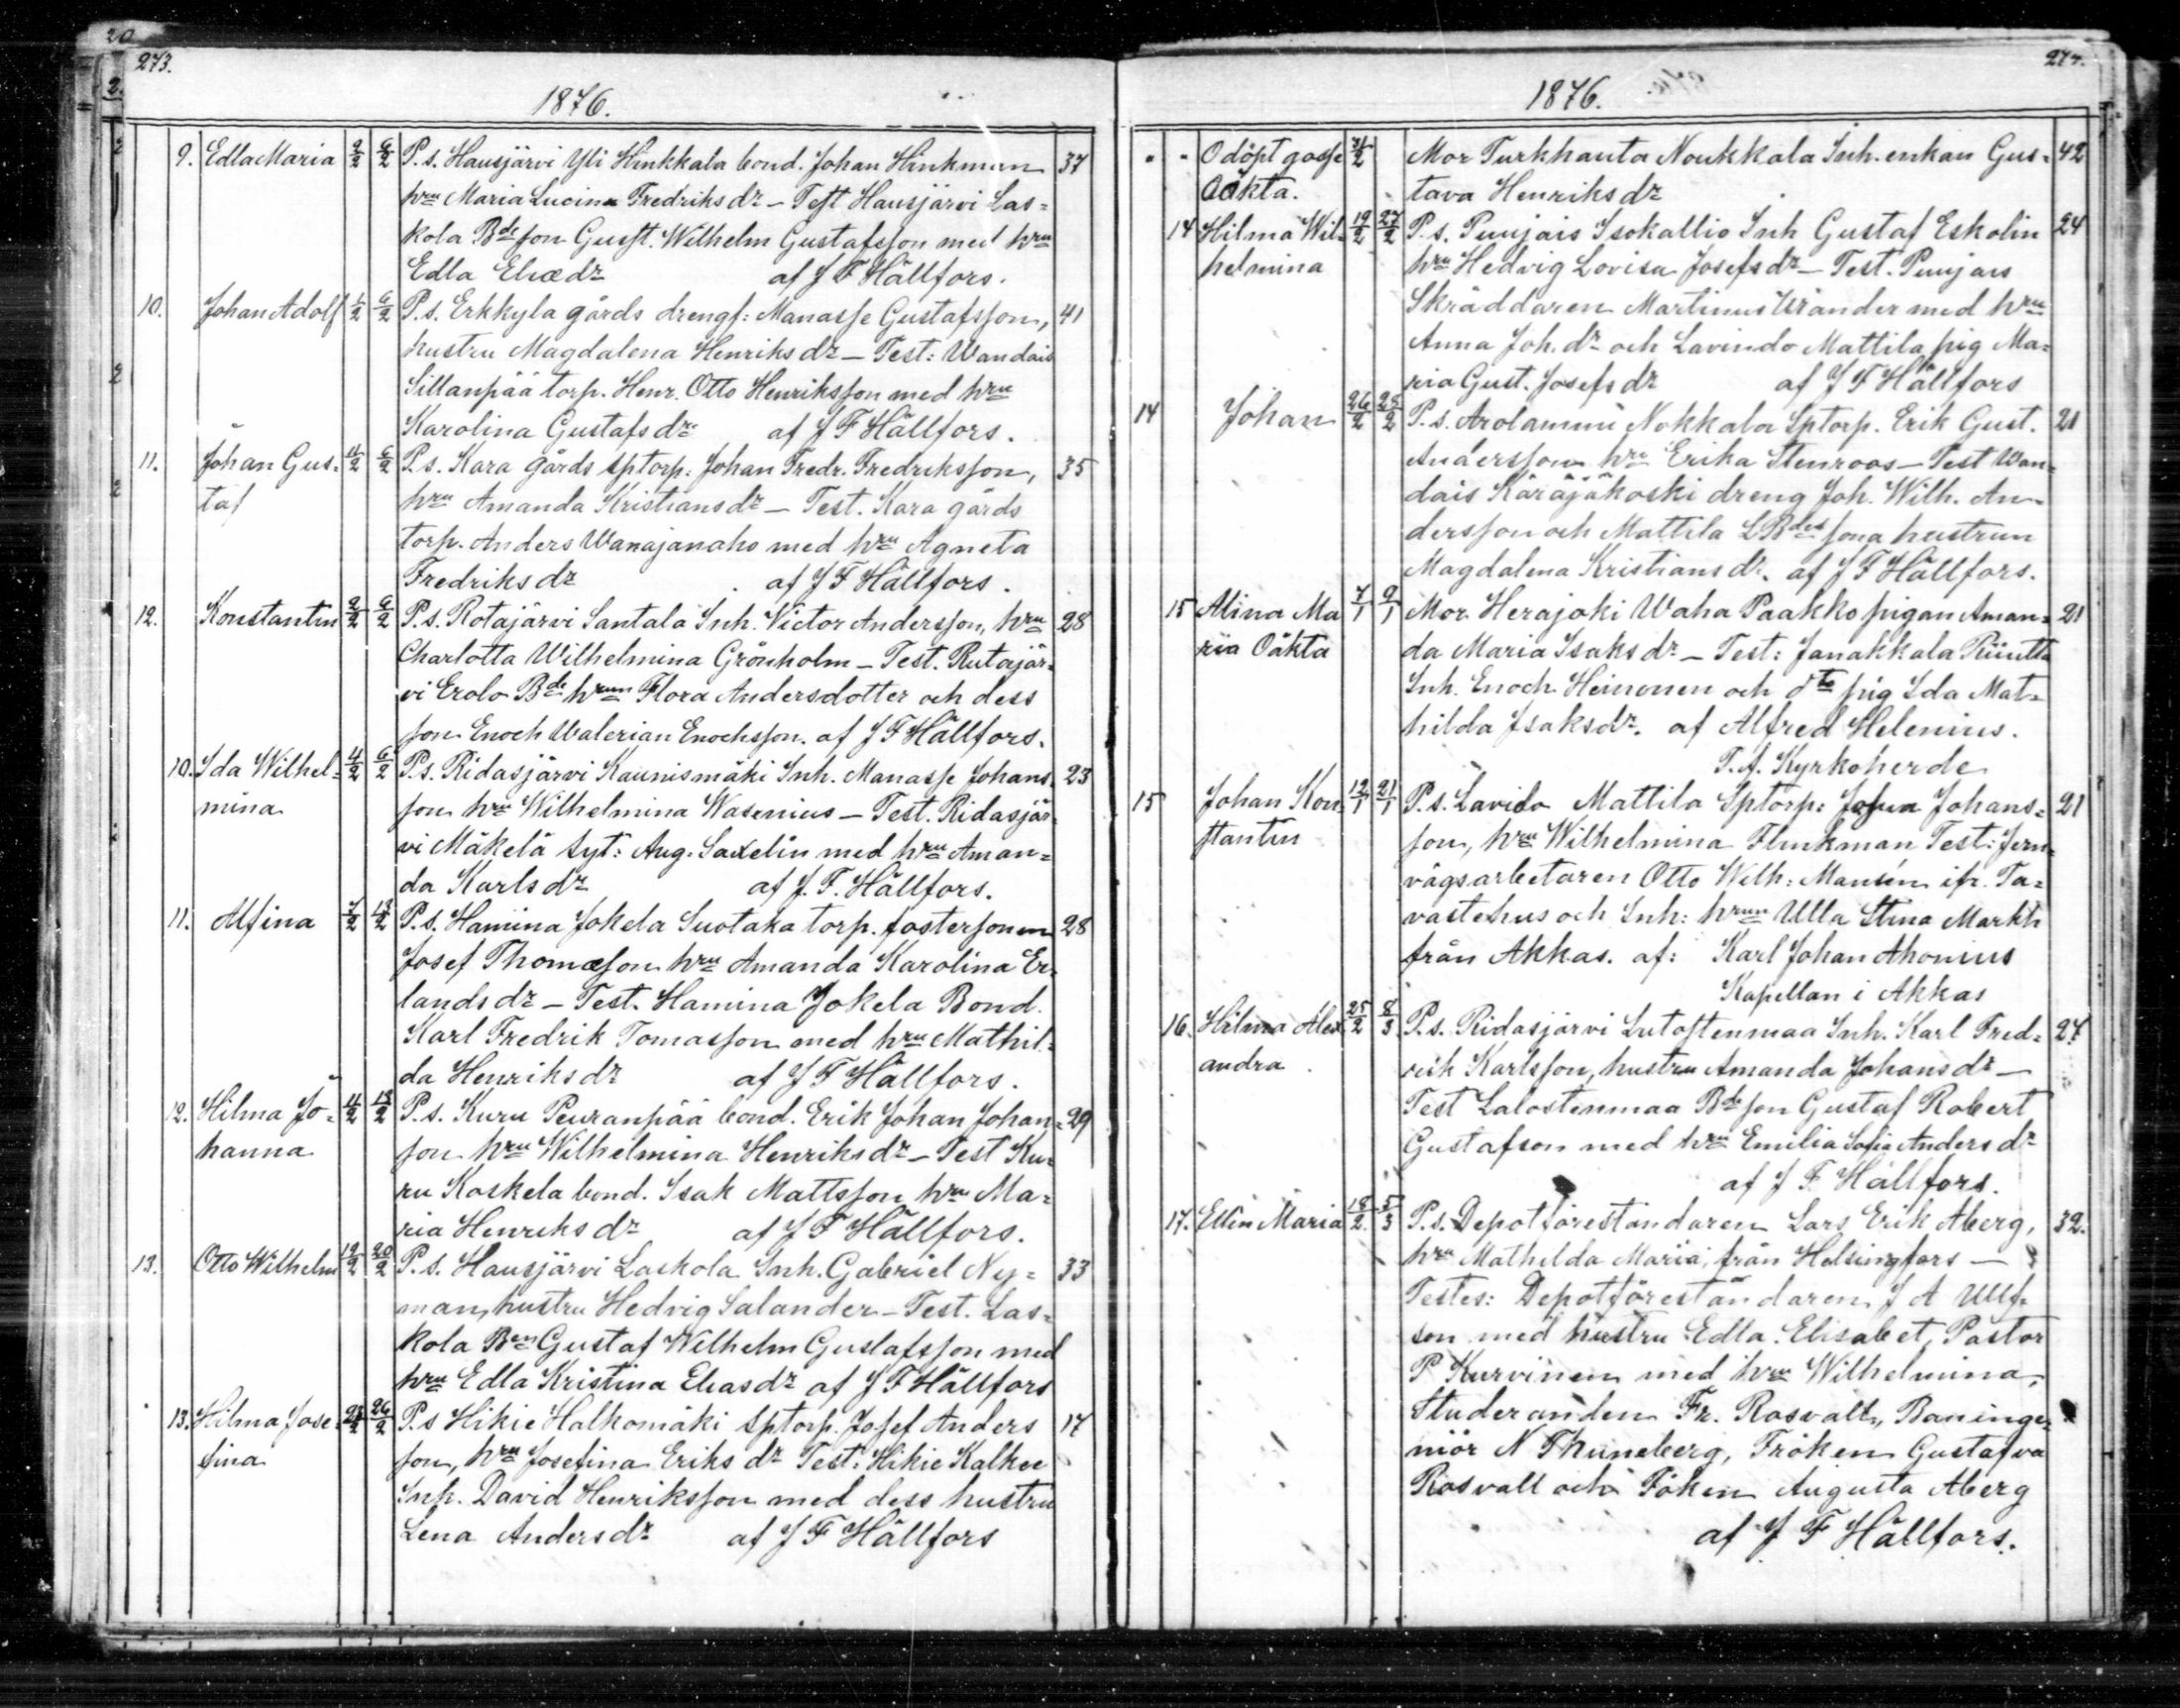 20
273.
2.
1876.
9. Edla Maria 2/2 6/2 P.s. Hausjärvi Yli Hinkkala bond. Johan Hinkman 37
hru Maria Lucina Fredriksdr – Test Hausjärvi Las=
kola Bde son Gust. Wilhelm Gustafsson med hru
Edla Eliædr af J F Hällfors.
10. Johan Adolf 1/2 6/2 P.s. Erkkyla gårds drengf: Manasse Gustafsson, 41
hustru Magdalena Henriksdr – Test: Wandais
Sillanpää torp. Henr. Otto Henriksson med hru
Karolina Gustafsdr af J F Hällfors.
11. Johan Gus= 4/2 6/2 P.s. Kara gårds sptorp: Johan Fredr. Fredriksson, 35
taf hru Amanda Kristiansdr – Test. Kara gårds
torp. Anders Wanajanaho med hru Agneta
Fredriksdr af J F Hällfors.
12. Konstantin 2/2 6/2 P.s. Rotajärvi Santala Inh. Victor Andersson, hru 28
Charlotta Wilhelmina Grönholm – Test. Rutajär=
vi Erolo Bde hrun Flora Andersdotter och dess
son Enoch Walerian Enochsson. af J F Hällfors.
10. Ida Wilhel= 4/2 6/2 P.s. Ridasjärvi Kaunismäki Inh. Manasse Johans= 23
mina son hru Wilhelmina Wasenius – Test. Ridasjär=
vi Mäkelä syt: Aug. Saxelin med hru Aman=
da Karlsdr af J. F. Hällfors.
11. Alfina 7/2 13/2 P.s. Hamina Jokela Suotaka torp. fostersonen 28
Josef Thomæson hru Amanda Karolina Er=
landsdr – Test. Hamina Jokela Bond.
Karl Fredrik Tomasson med hru Mathil=
da Henriksdr af J F Hällfors.
12. Hilma Jo= 4/2 13/2 P.s. Kuru Peuranpää bond. Erik Johan Johan= 29
hanna son hru Wilhelmina Henriksdr – Test Ku=
ru Koskela bond. Isak Mattsson hru Ma=
ria Henriksdr af J F Hällfors.
13. Otto Wilhelm 12/2 20/2 P.s. Hausjärvi Laskola Inh. Gabriel Ny= 33
man, hustru Hedvig Salander – Test. Las=
kola Ben Gustaf Wilhelm Gustafsson med
hru Edla Kristina Eliasdr af J F Hällfors
13. Hilma Jose= 26/2 P.s Hikie Halkomäki sptorp. Josef Anders 17
fina son, hru Josefina Eriks dr Test: Hikie Kalkee
Inh. David Henriksson med dess hustru
Lena Andersdr af J F Hällfors
274.
1876.
Odöpt gosse Mor Turkhauta Noukkala Inh. enkan Gus= 42
Oäkta. tava Henriksdr
14 Hilma Wil= 19/2 27/2 P.s. Punjais Isokallio Inh Gustaf Eskolin 24
helmina hru Hedvig Lovisa Josefsdr – Test. Punjais
Skräddaren Martinus Uränder med hru
Anna Joh. dr och Lavindo Mattila pig Ma=
ria Gust. Josefsdr af J F Hällfors
14 Johan 26/2 28/2 P.s. Arolammi Nokkala Sptorp. Erik Gust. 21
Andersson hru Erika Stenroos – Test Wan=
dais Käräjäkoski dreng Joh. Wilh. An=
dersson och Mattila LBdes sona hustrun
Magdalena Kristians dr. af J F Hällfors.
15 Alina Ma 7/1 9/1 Mor Herajoki Waha Paakko pigan Aman= 21
ria Oäkta da Maria Isaksdr – Test: Janakkala
Inh. Enoch Heinonen och dto pig Ida Mat=
hilda Isaksdr. af Alfred Helenius.
T.f. Kyrkoherde
15 Johan Kon= 12/1 21/1 P.s. Lavido Mattila Sptorp: Johans= 21
stantin son, hru Wilhelmina Flinkman Test: Jern=
vägsarbetaren Otto Wilh: Mansén ifr. Ta=
vastehus och Inh: hrun Ulla Stina Markti
från Akkas. af: Karl Johan Ahonius
Kapellan i Akkas
16. Hilma Alex 25/2 8/3 P.s. Ridasjärvi Lutostenmaa Inh. Karl Fred= 27
andra rik Karlsson, hustru Amanda Johansdr –
Test Lalostenmaa Bde son Gustaf Robert
Gustafson med hru Emilia Sofia Andersdr
af J F Hällfors.
17. Ellin Maria 18/2. 5/3 P.s. Depotföreståndaren Lars Erik Åberg, 32.
hru Mathilda Maria, från Helsingfors –
Testes: Depotföreståndaren J A Ulf=
son med hustru Edla Elisabet, Pastor
P Kurvinen med hru Wilhelmina,
Studeranden Fr. Rosvall, Baninge=
niör N Thuneberg, Fröken Gustafva
Rosvall och Föken Augusta Åberg
af J F Hällfors.